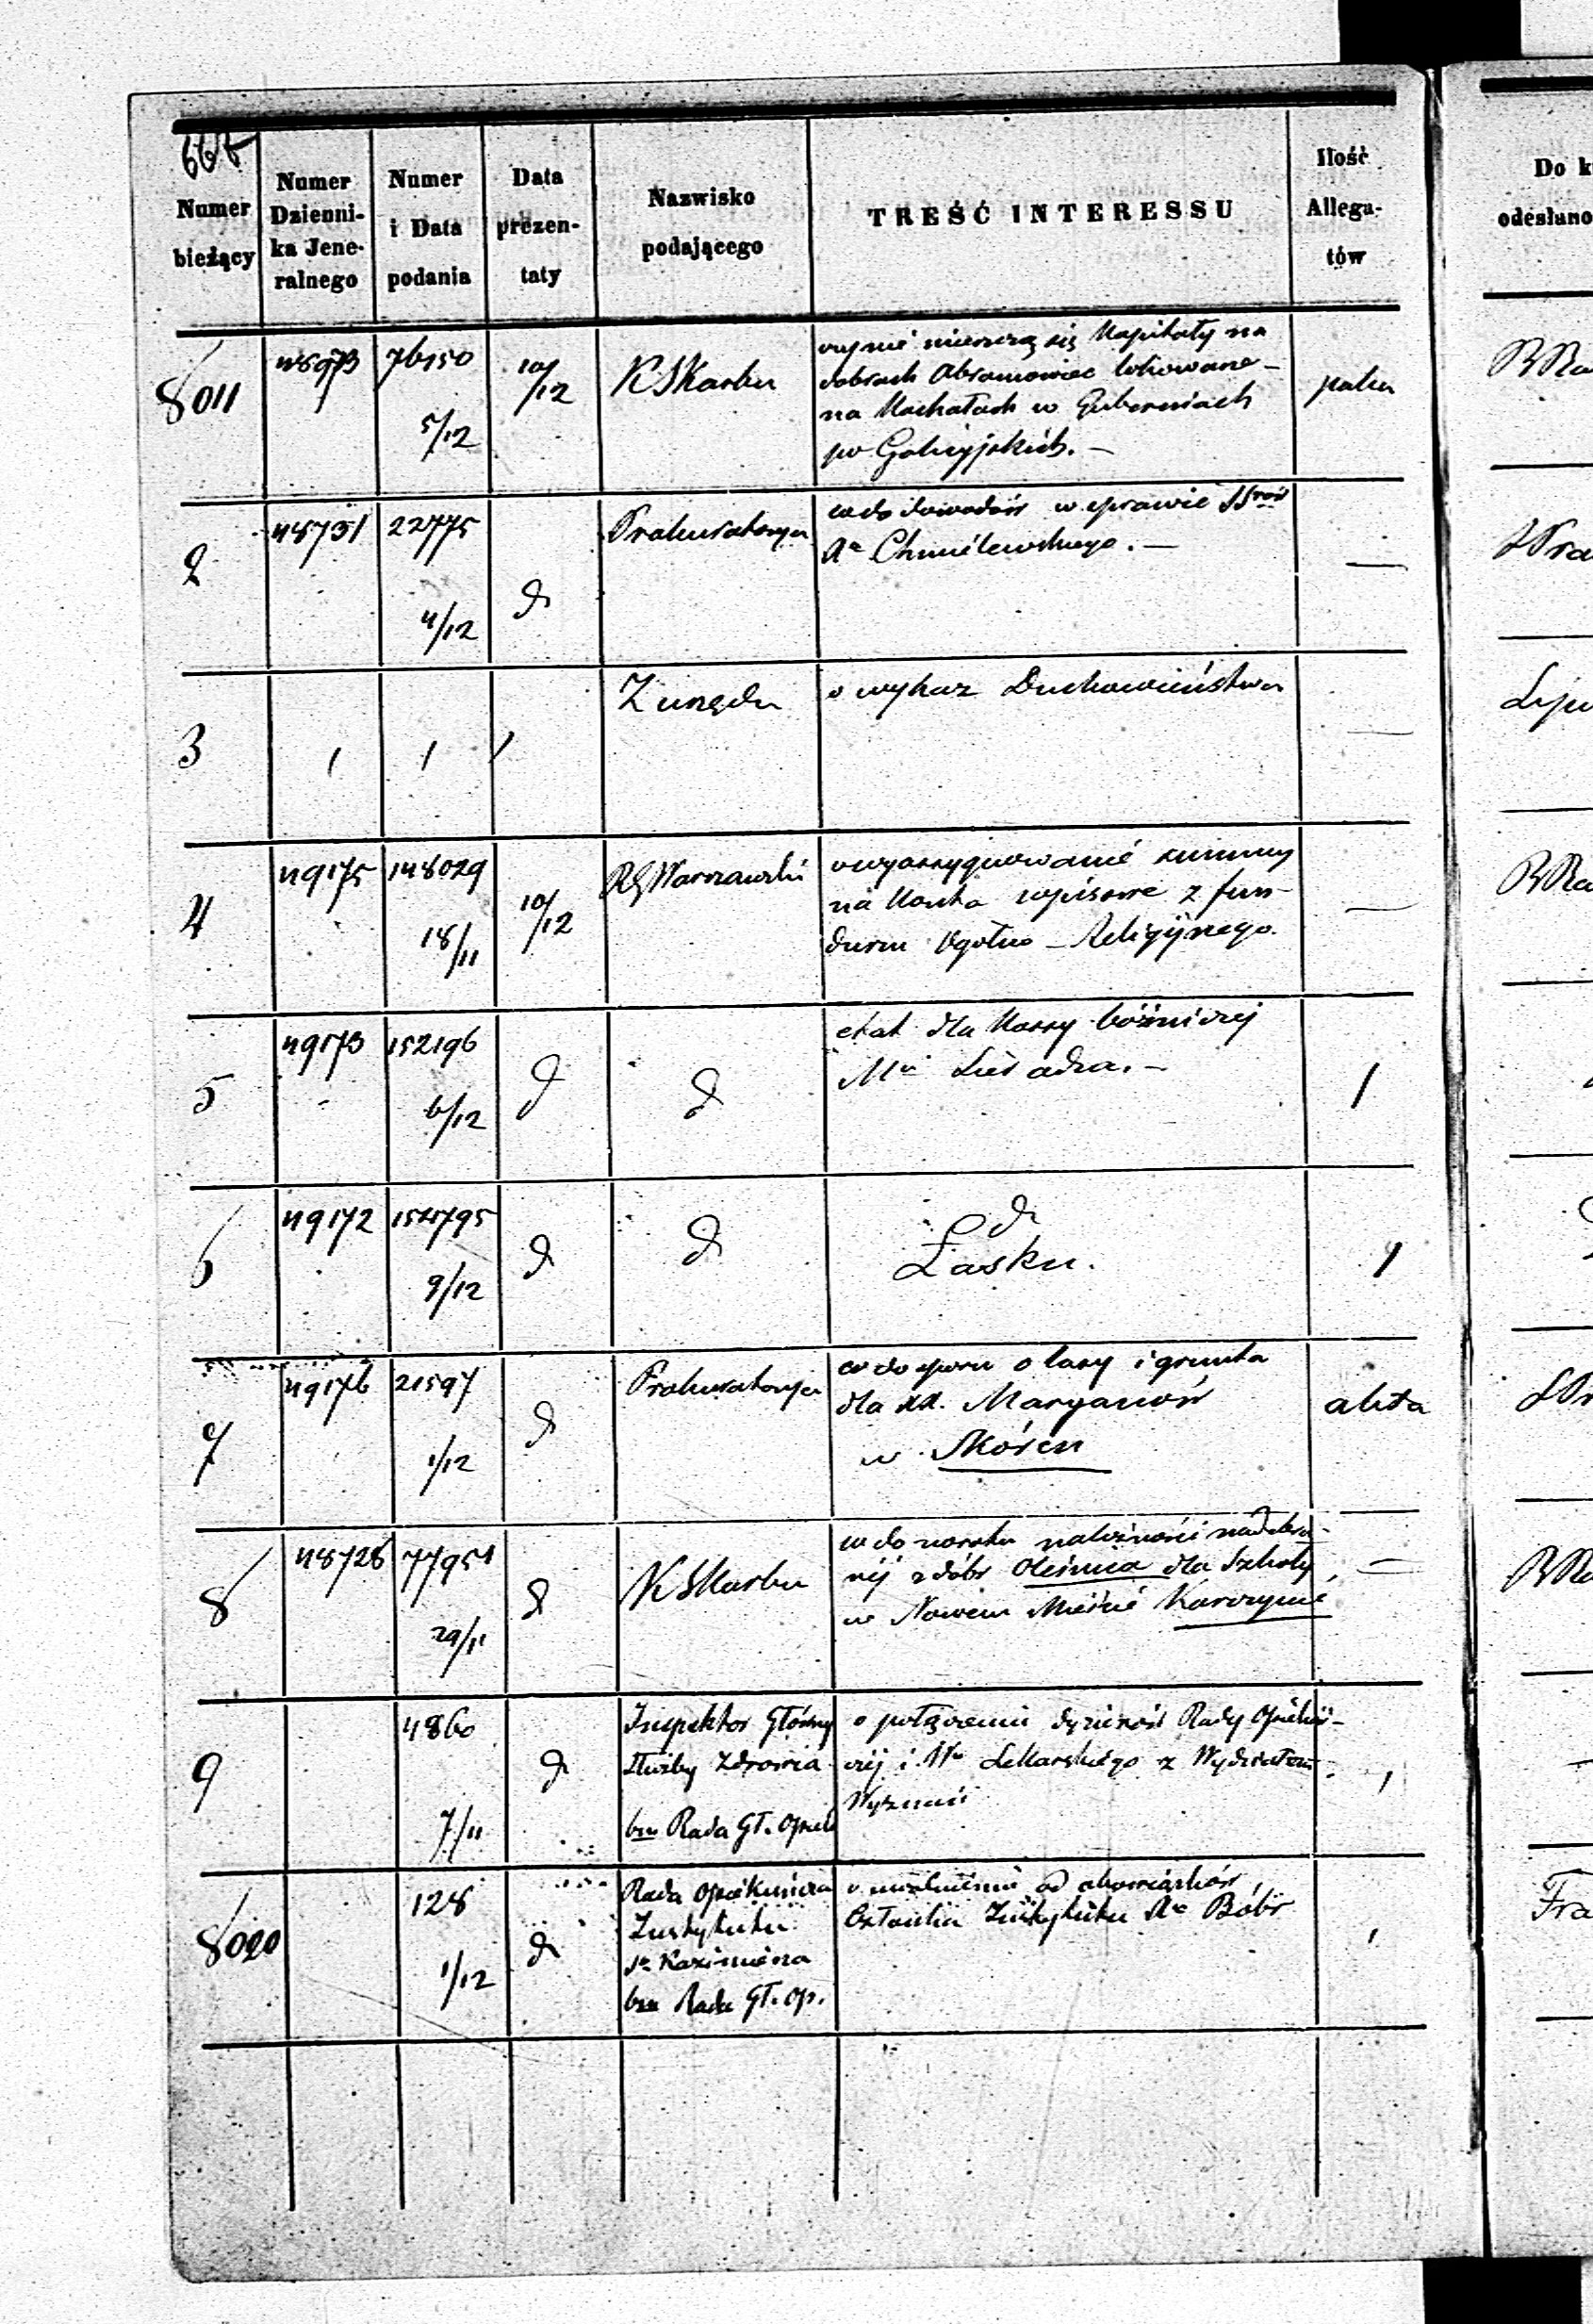 668
Numer bieżący
Numer Dzienni-
ka Jene-
ralnego
Numer i Data podania
Data prezen-
taty
Nazwisko podającego
TREŚĆ INTERESSU
Ilość Allega-
tów
Do k
odesłano
8011 48973 76150 5/12 10/12 K Skarbu
czy nie mieszczą się Kapitały na
dobrach Abramowice lokowane
na Kachałach w Guberniach
po Galicyjskich. —
paka
2 48731 22775 4/12 d Prokuratorya
co do dowodów w sprawie SSrów
Chmielewskiego. —
—
3 / / / Z urzędu
o wykaz Duchowieństwa
—
4 49175 148029 18/11 10/12 RG Warszawski
o wyassygnowanie summy
na Konta wpisowe z fun-
duszu Ogólno-Religijnego.
—
5 49173 152196 6/12 d d
etat dla Kassy bóżniczej
Mta Sieradza. —
1
6 49172 154795 9/12 d d
d
Łasku.
1
7 49176 21597 1/12 d Prokuratorya
co do sporu o lasy i grunta
dla XX. Maryanów
w Skórcu
akta
8 48728 77951 29/11 d K Skarbu
co do zwrotu należności nadebra-
nej z dóbr Oleśnica dla Szkoły
w Nowem Mieście Korczynie
—
9 4860 7/11 d
Inspektor Główny
Służby Zdrowia
bru Rada Gł. Opiek
o połączeniu dążeń Rady Opiekuń-
czej i Lekarskiego z Wydziałem
Wyznań
8020 128 1/12 d
Rada Opiekuńcza
Instytutu
Sgo Kazimierza
bru Rada Gł. Op.
o uwolnienie od obowiązków
Członka Instytutu Bóbr